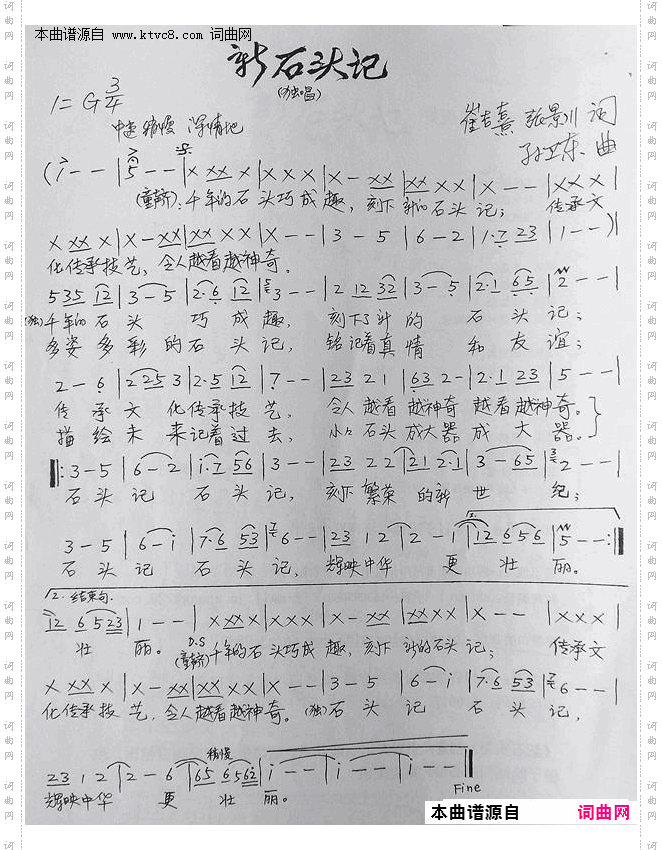 本曲谱源自 www.ktvc8.com 词曲网
新石头记
(独唱)
1=G 3/4
中速稍慢 深情地
崔吉熹 张景川 词
孙卫东 曲
(i - - | 5 - - | X XX X | X X X X | X - XX | XX XX X | X - - | X X X |
(童声):千年的石头巧成趣,刻下新的石头记;传承文
X XX X | X - XX | XX X X | X - - | 3 - 5 | 6 - 2 | 1·7 23 | 1 - - )|
化传承技艺,令人越看越神奇。
535 12 | 3 - 5 | 2·6 12 | 3 - - | 2 12 32 | 3 - 5 | 2·1 65 | 2 - - |
(独)千年的石头巧成趣,刻下了斗的石头记;
多姿多彩的石头记,铭记着真情和友谊;
2 - 6 | 225 3 | 2·5 12 | 7 - - | 23 2 1 | 63 2 - | 2·1 23 | 5 - - |
传承文化传承技艺,令人越看越神奇越看越神奇。
描绘未来记着过去,小小石头成大器成大器。
3 - 5 | 6 - 2 | i·7 56 | 3 - - | 23 2 2 | 21 2·1 | 3 - 65 | 2 - - |
石头记石头记,刻下繁荣的新世纪;
3 - 5 | 6 - i | 7·6 53 | 6 - - | 23 1 2 | 2 - 1 | 12 6 56 | 5 - - :|
石头记石头记,辉映中华更壮丽。
2. 结束句.
12 6 523 | 1 - - | X XX X | X X X X | X - XX | XX XX X | X - - | X X X |
壮丽。 D.S (童声)千年的石头巧成趣,刻下新的石头记;传承文
X XX X | X - XX | XX XX X | X - - | 3 - 5 | 6 - i | 7·6 53 | 6 - - |
化传承技艺,令人越看越神奇。(独)石头记石头记,
稍慢
23 1 2 | 2 - 6 | 65 6562 | i - - | i - - | i - - |
辉映中华更壮丽。
Fine
本曲谱源自 词曲网
词曲网